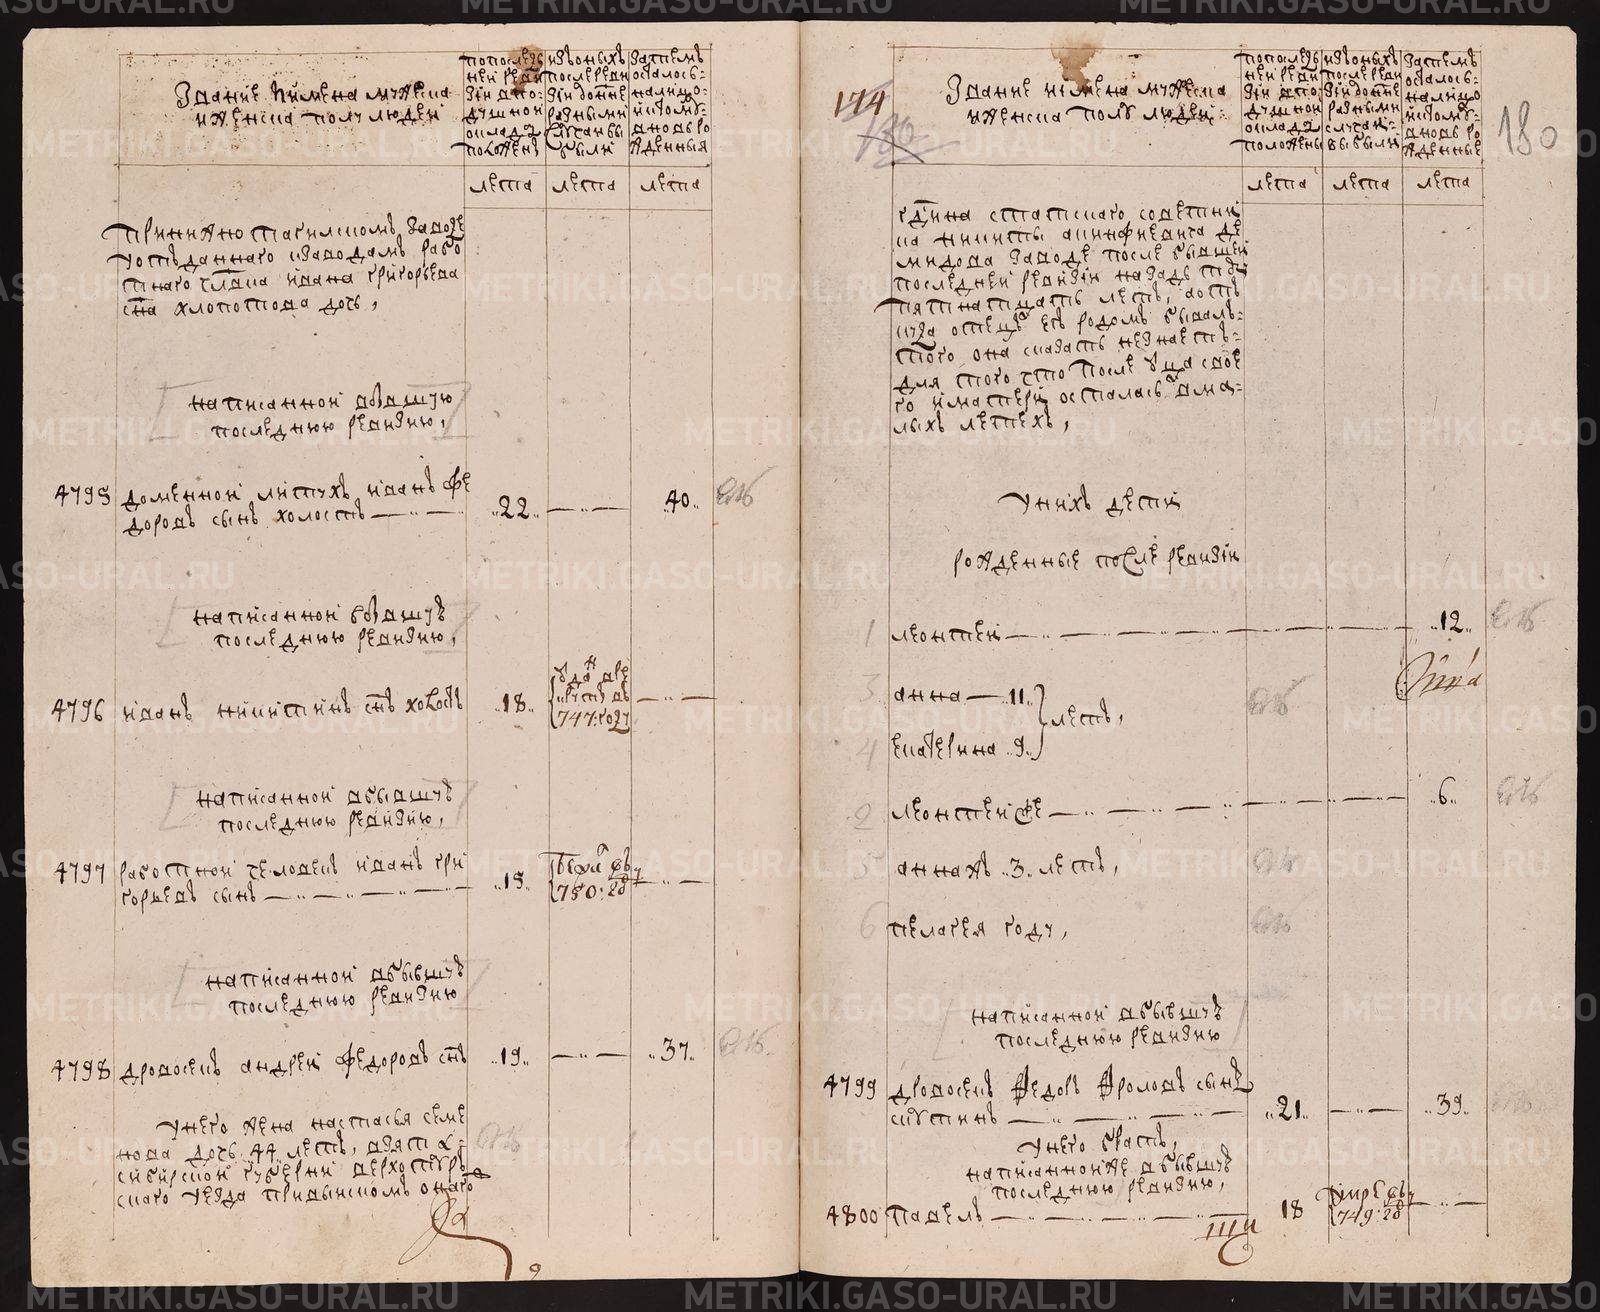 Звание и имена мужеска
и женска полу людей
по последь
ней реви
зии в по
душной
оклад
положен
из оных
после реви
зии до ныне
разными
случаи вы
были
затем
осталось
налицо
и с того
вновь ро
жденныя
лета
лета
лета
при Нижнотагилском заводе
у отъданнаго к заводам рабо
тнаго члвка Ивана Григорьева
сна Хлопотова дочь,
написанной в бывшую
последнюю ревизию,
4795 доменной Иван Фе
доров сын холост 22 40
написанной в бывшую
последнюю ревизию,
4796 Иван Никитин снъ холостъ 18
747: году
написанной в бывшую
последнюю ревизию,
4797 работной человек Иван Гри
горьев сын 15
750: го
написанной в бывшую
последнюю ревизию
4798 дровосек Андрей Федоров снъ 19 37
у него жена Настасья Семе
нова дочь 44 лет, взята
Сибирской губернии Верхотур
скаго уезда при онаго
174
180
Звание и имена мужеска
и женска полу людей
по последь
ней реви
зии в по
душной
оклад
положены
из оных
после реви
зии до ныне
разными
случаи
выбыли
затем
осталось
налицо
и с того
вновь ро
жденные
лета
лета
лета
гдина статского советни
ка Никиты Акинфиевича Де
мидова заводе после бывшей
последней ревизии назадь тому
пятнатцать лет, а отъ
куда отец ея родом бывал
того она сказать не знает
для того что после отца свое
го и матери осталась в ма
лых летех,
у них дети
рожденные после ревизии
1 Леонтей 12
3 Анна 11
лет,
4 Екатерина 9
2 Леонтей же 6
5 Анна ж 3 лет,
6 Пелагея году,
написанной в бывшую
последнюю ревизию
4799 дровосек Федор Фролов сын
21 39
у него брат,
написанной же в бывшую
последнюю ревизию,
4800 Павел 18 умре в
749: го
METRIKI.GASO-URAL.RU